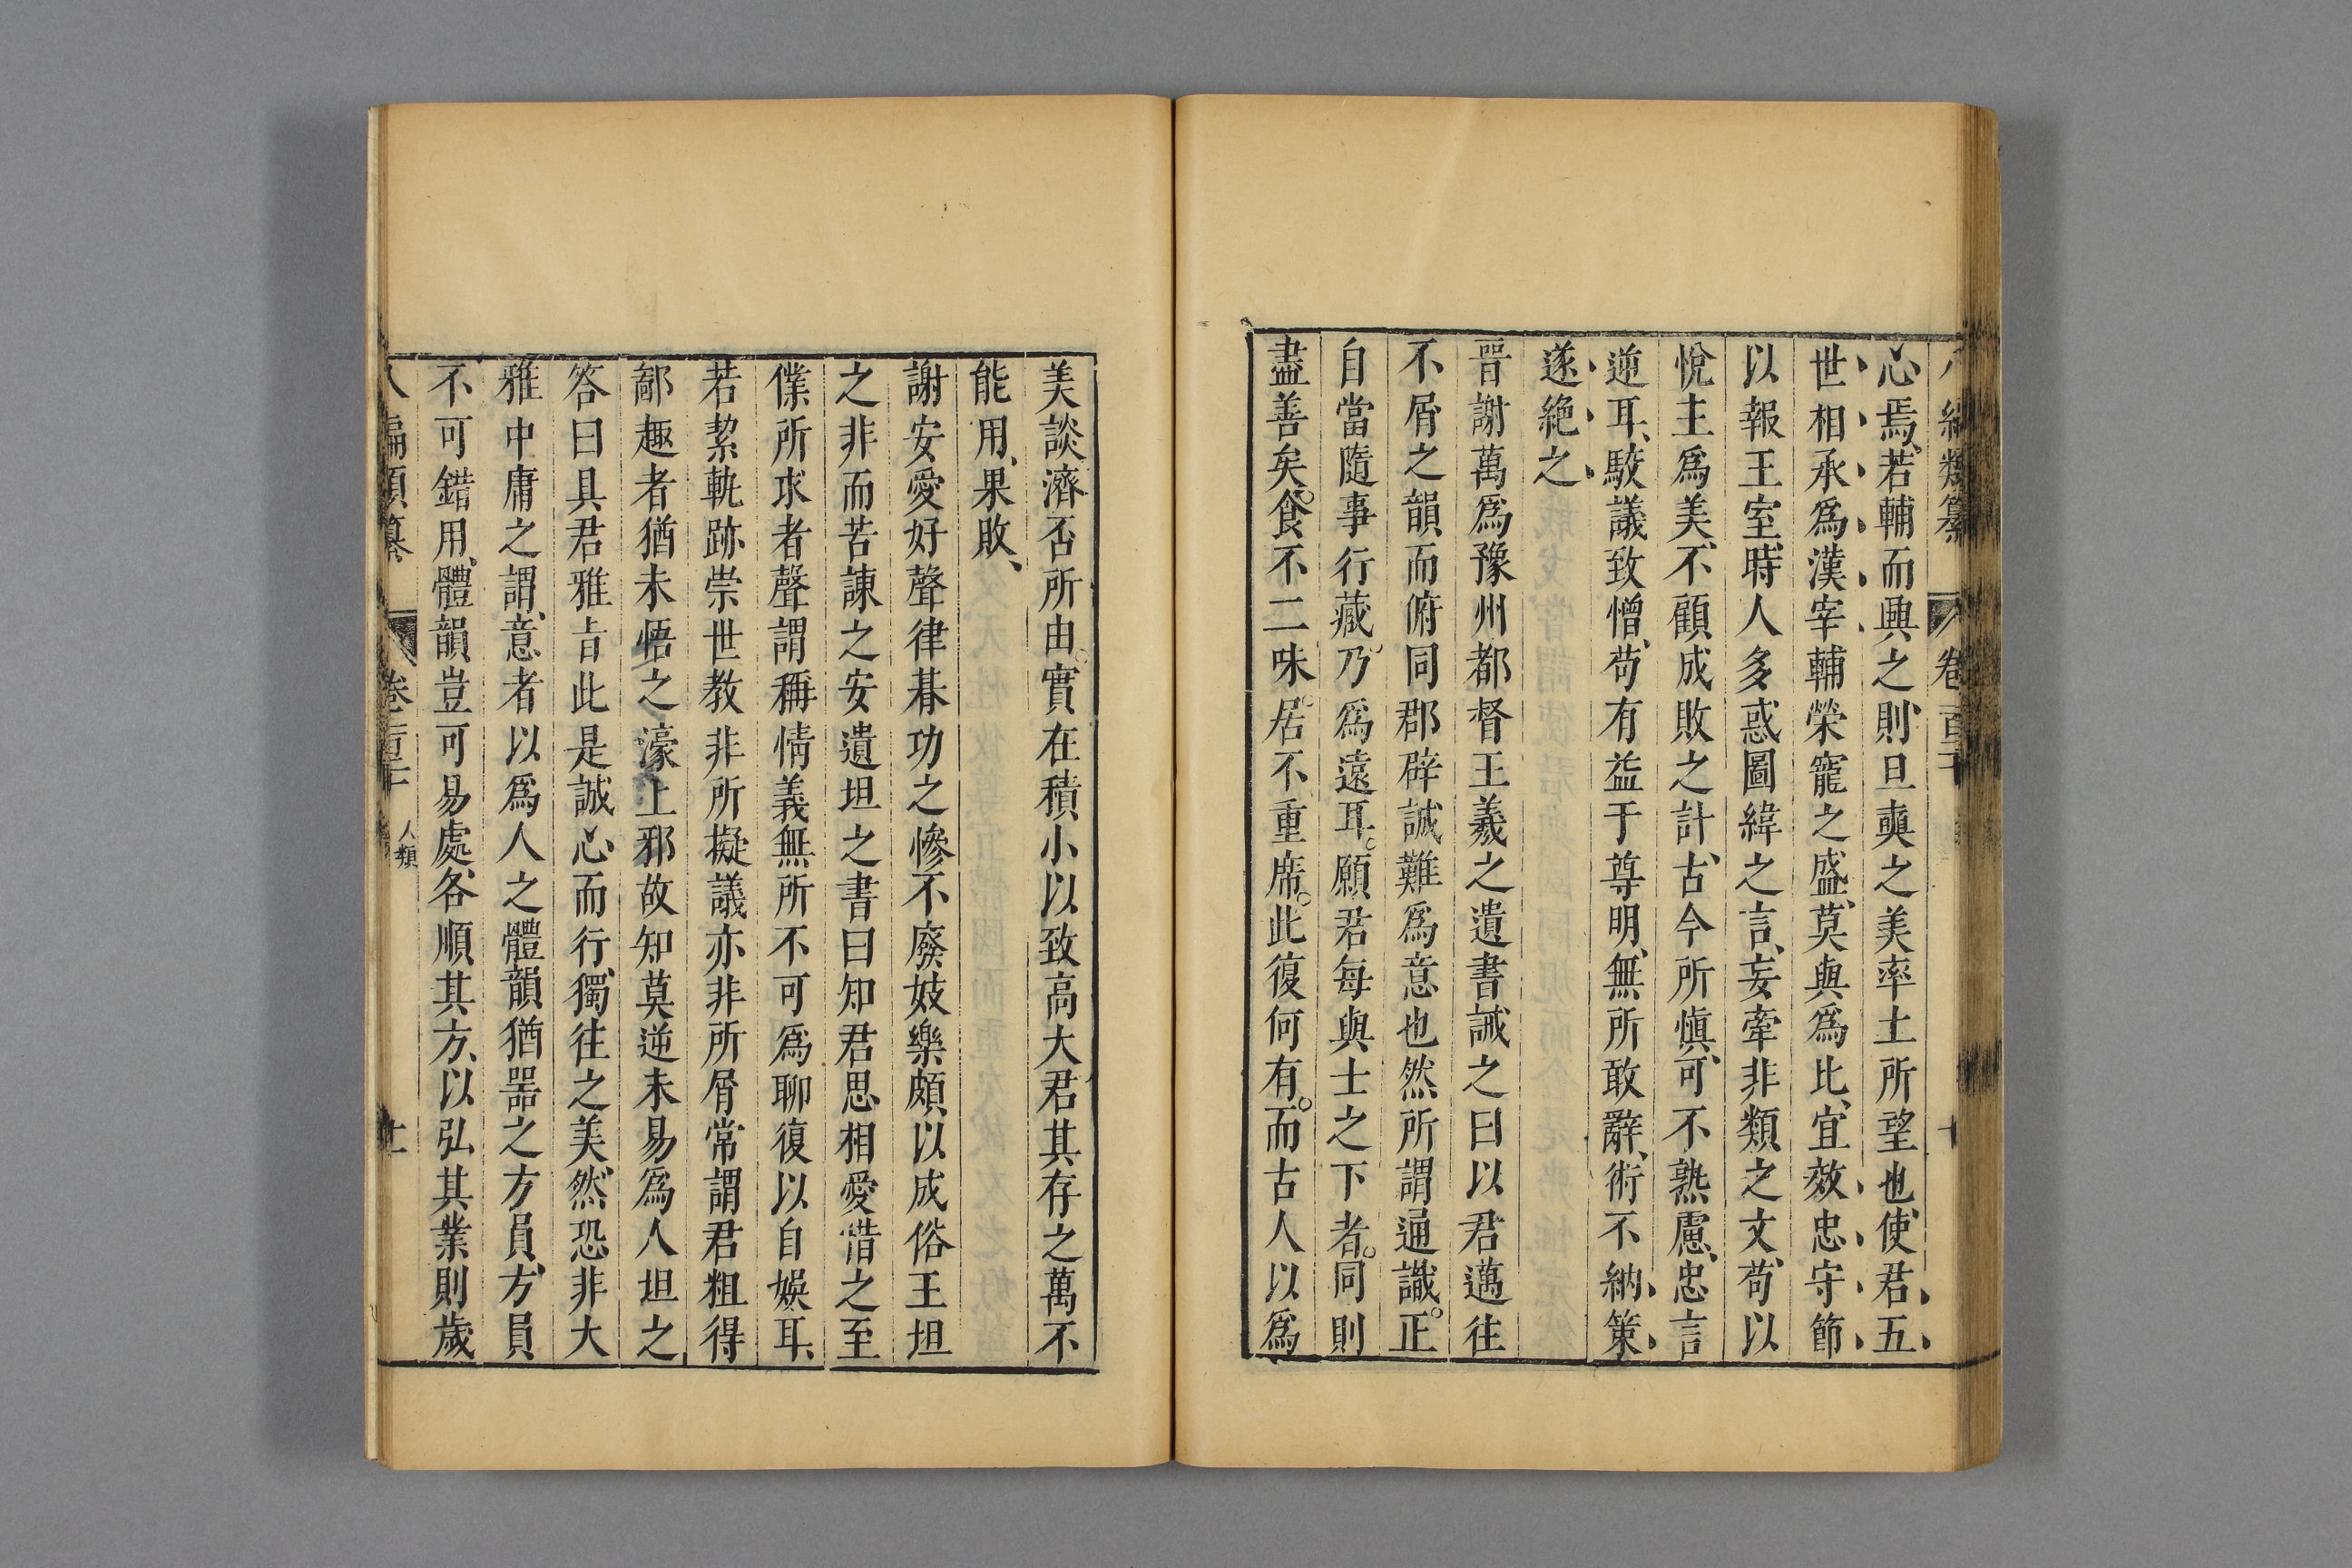 心焉、若輔而興之、則旦奭之美率土所望也、使君五
世相承爲漢宰輔榮寵之盛、莫與爲比、宜效忠守節
以報王室、時人多惑圖緯之言、妄牽非類之文、苟以
悅主爲美、不顧成敗之計、古今所愼、可不熟慮、忠言
逆耳、駮議致憎、苟有益于尊明、無所敢辭、術不納策
遂絕之
晉謝萬爲豫州都督王羲之遺書誡之曰以君邁往
不屑之韻而俯同郡辟誠難爲意也然所謂通識。正
自當隨事行藏、乃爲遠耳。願君每與士之下者。同則
盡善矣。食不二味。居不重席。此復何有。而古人以爲
美談濟否所由。實在積小以致高大君其存之萬不
能用、果敗、
謝安愛好聲律朞功之慘不廢妓樂頗以成俗王坦
之非而苦諫之安遺坦之書曰知君思相愛惜之至
僕所求者聲謂稱情義無所不可爲聊復以自娛耳、
若絜軌跡崇世教非所擬議亦非所屑常謂君粗得
鄙趣者猶未悟之濠上邪故知莫逆未易爲人坦之
答曰具君雅旨此是誠心而行、獨往之美、然恐非大
雅中庸之謂、意者以爲人之體韻猶器之方員、方員
不可錯用、體韻豈可易處、各順其方、以弘其業則歲
八編類纂 卷二百二十 人類 十一